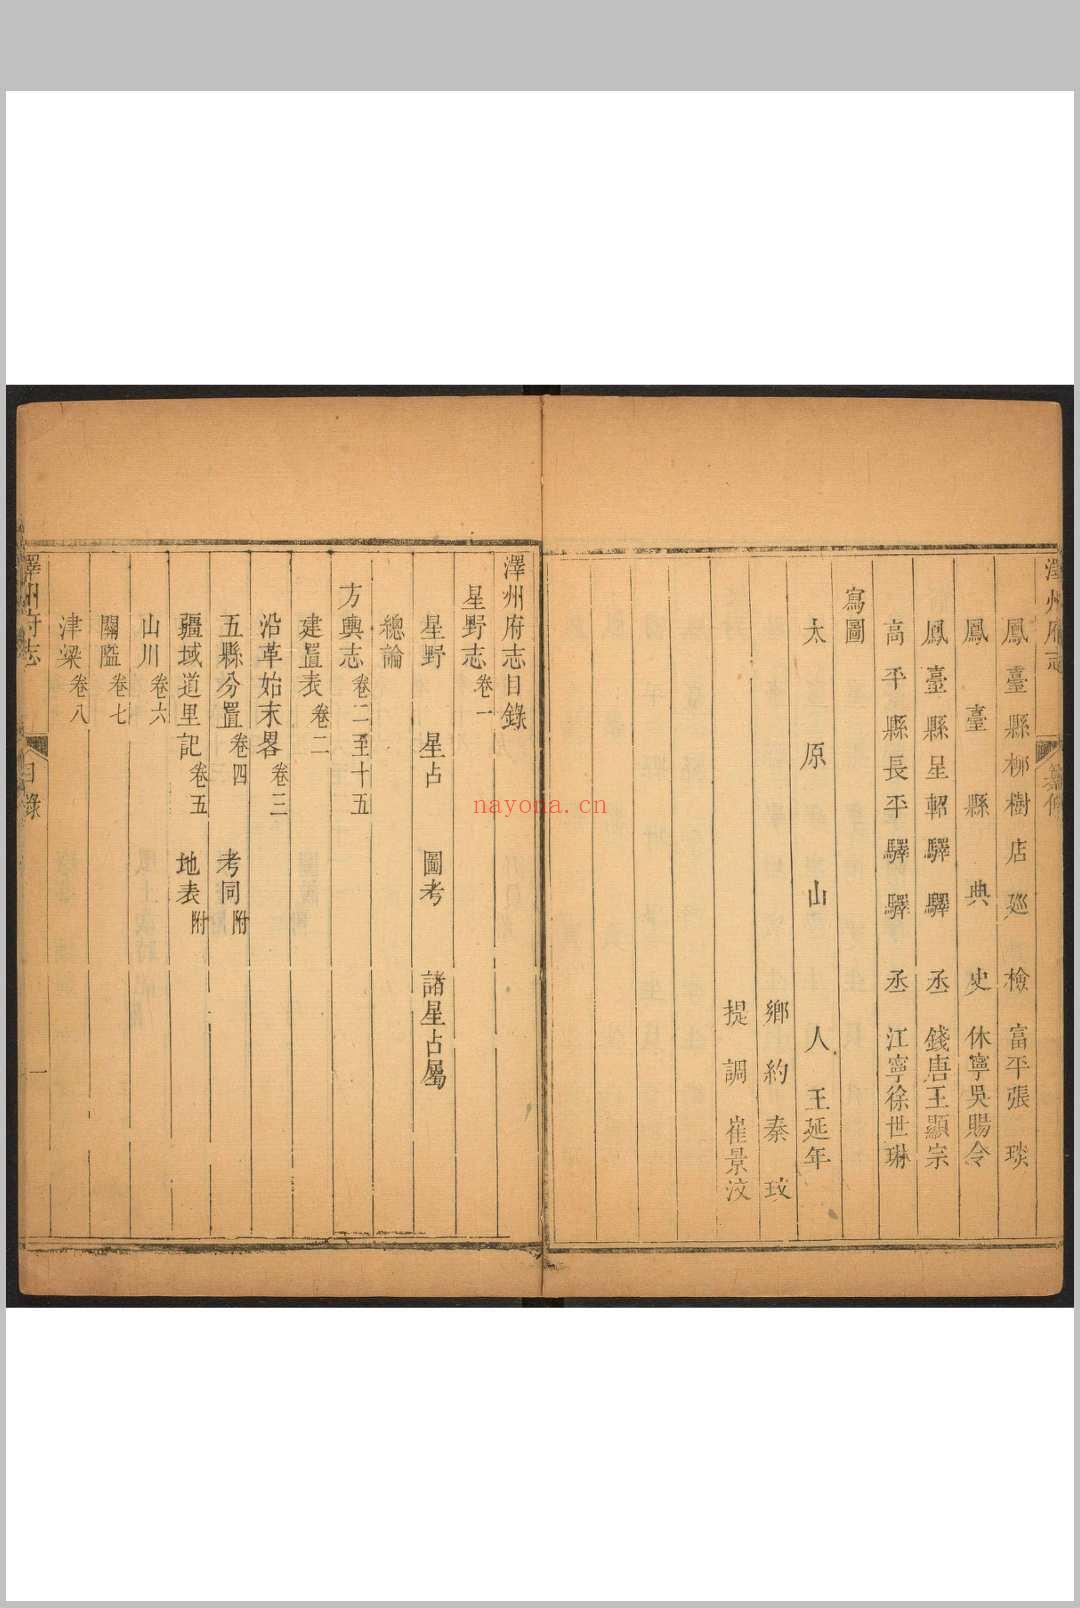 澤州府志
鳳臺縣柳樹店廵檢 富平張琰
鳳臺縣典史 休寧吳賜令
鳳臺縣星軺驛驛丞 錢唐王顯宗
高平縣長平驛驛丞 江寧徐世琳
寫圖
太原山人 王延年
鄉約 秦玟
提調 崔景汶
澤州府志目錄
星野志卷一
星野 星占 圖考 諸星占屬
總論
方輿志卷二至十五
建置表卷二
沿革始末畧卷三
五縣分置卷四 考同附
疆域道里記卷五 地表附
山川卷六
關隘卷七
津梁卷八
澤州府志 目錄 一
nayona.cn